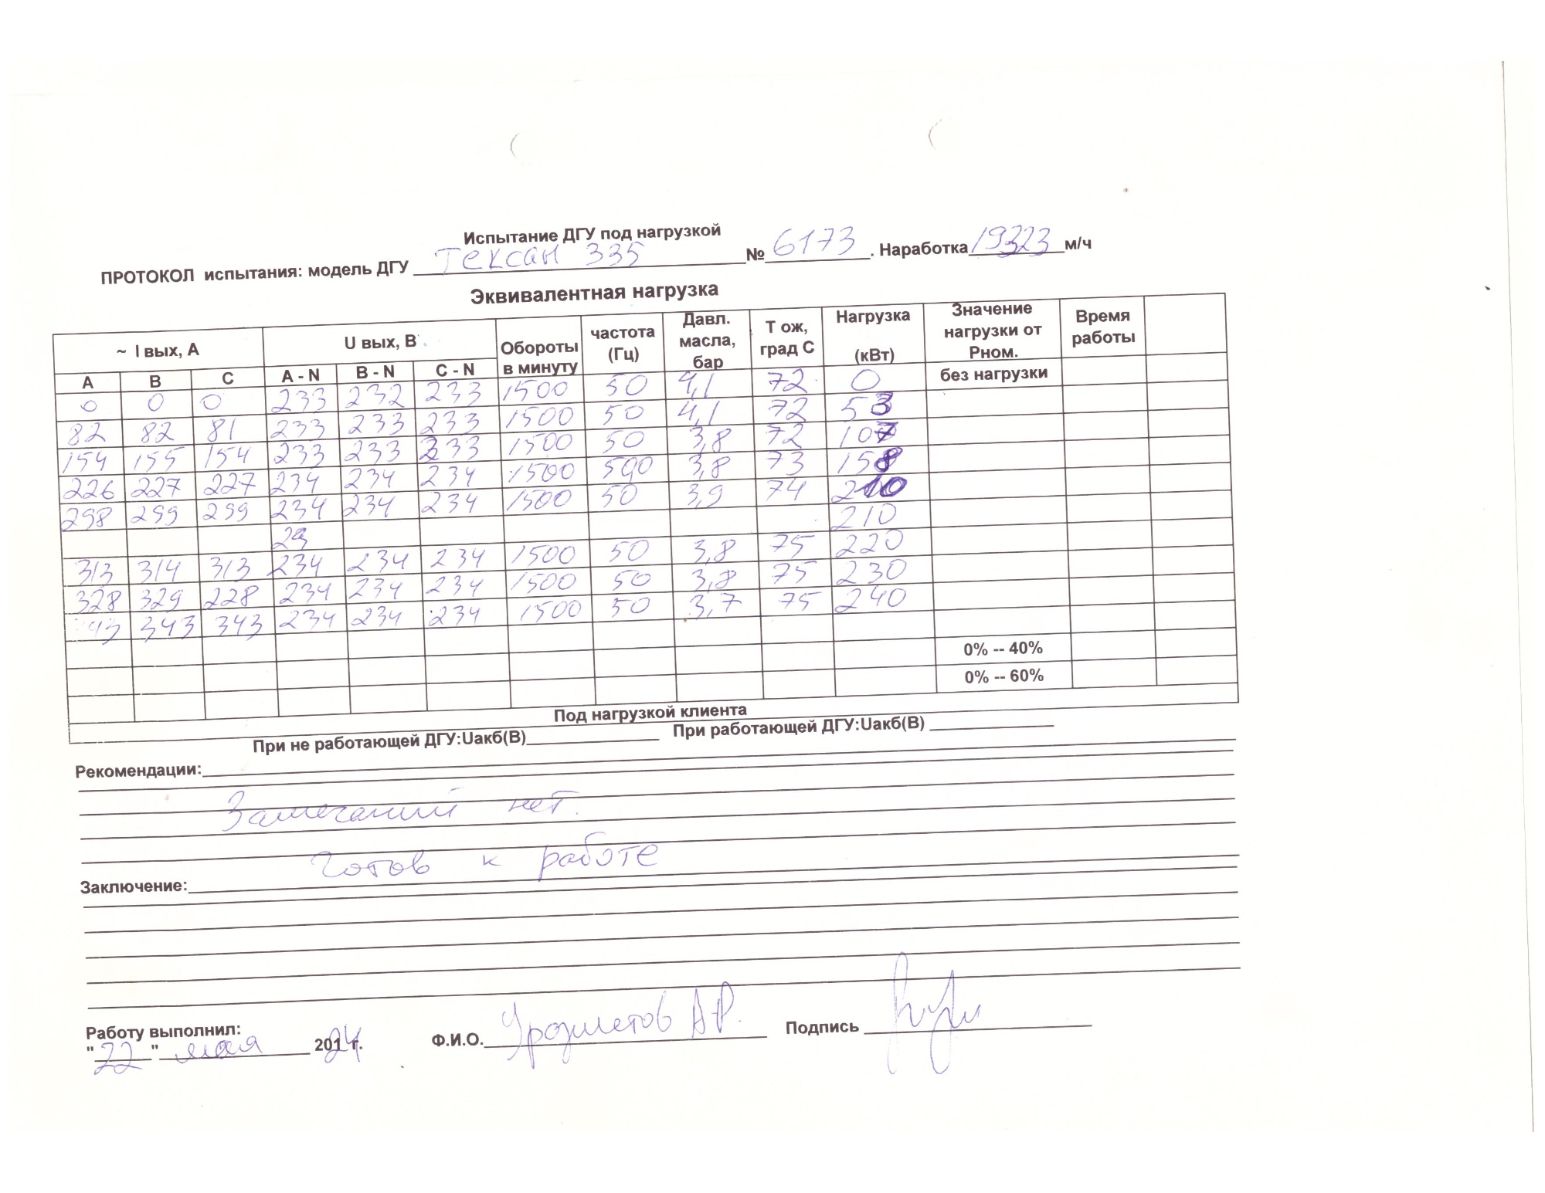 Испытание ДГУ под нагрузкой
ПРОТОКОЛ испытания: модель ДГУ Тексан 335 № 6173. Наработка 19323 м/ч
Эквивалентная нагрузка
~ I вых, А U вых, В Обороты в минуту частота (Гц) Давл. масла, бар Т ож, град С Нагрузка (кВт) Значение нагрузки от Рном. Время работы
А В С А - N В - N С - N без нагрузки
0 0 0 233 232 233 1500 50 4,1 72 0
82 82 81 233 233 233 1500 50 4,1 72 53
154 155 154 233 233 233 1500 50 3,8 72 107
226 227 227 234 234 234 1500 500 3,8 73 158
298 299 299 234 234 234 1500 50 3,9 74 210
210
313 314 313 234 234 234 1500 50 3,8 75 220
328 329 228 234 234 234 1500 50 3,8 75 230
343 343 234 234 234 1500 50 3,7 75 240
0% -- 40%
0% -- 60%
Под нагрузкой клиента
При не работающей ДГУ:Uакб(В) При работающей ДГУ:Uакб(В)
Рекомендации:
Замечаний нет.
Готов к работе
Заключение:
Работу выполнил:
"22" мая 2024 г. Ф.И.О. Подпись